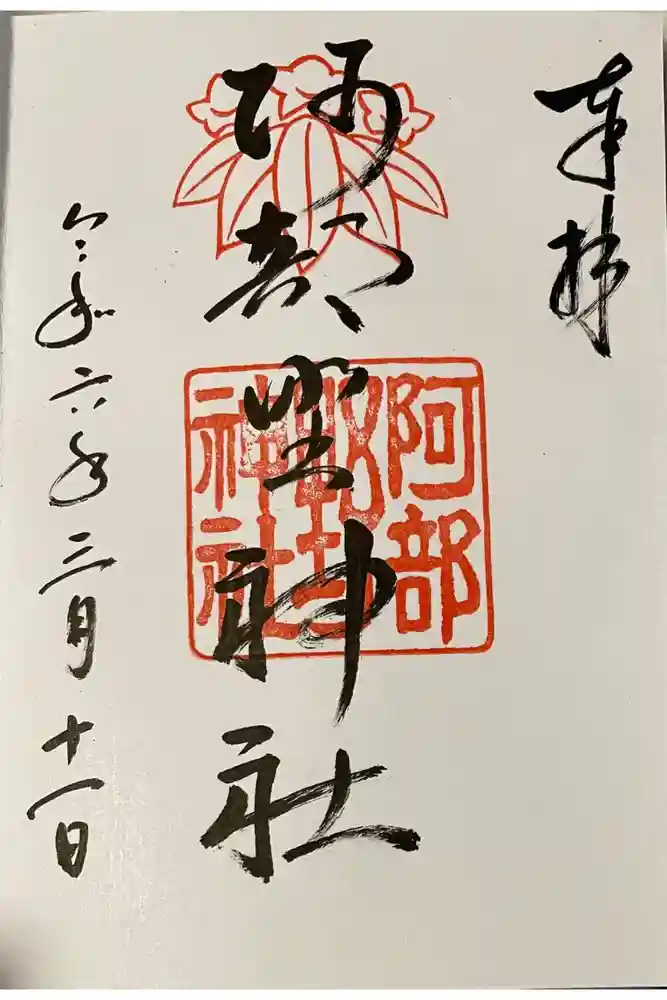 奉拝
阿部野神社
阿部
野
神社
令和六年三月十一日